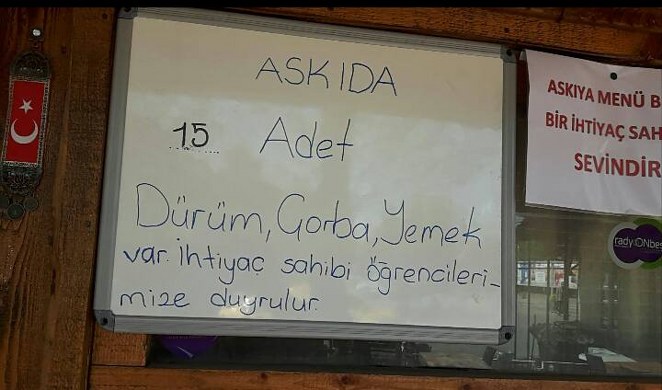 ASKIDA
15 Adet
Dürüm, Çorba, Yemek
var. İhtiyaç sahibi öğrencileri-
mize duyrulur.
ASKIYA MENÜ B
BİR İHTİYAÇ SAH
SEVİNDİR
radyONbeş